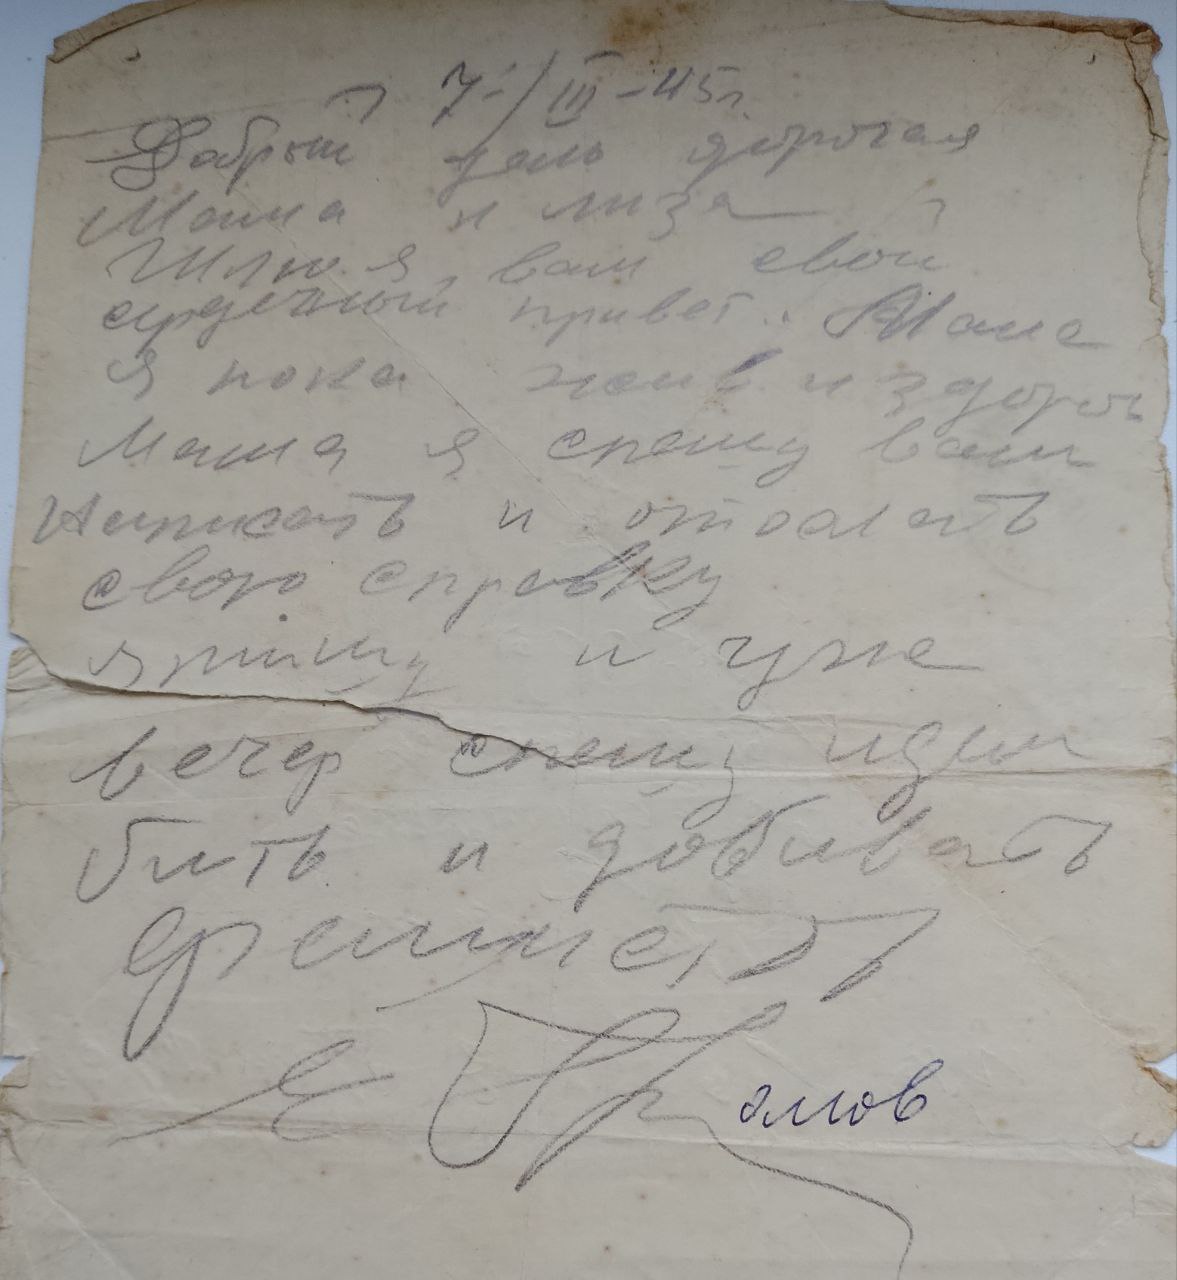 7/III-45г
Добрый день дорогая
Мама и лиза
Шлю я вам свой
сердечный привет. Мама
я пока жив и здоров
Мама я спешу вам
Написать и отослать
свою справку
я пишу и уже
вечер спешу идем
бить и добивать
Е